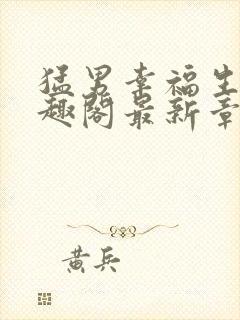 猛男幸福生
趣阁最新章
黄兵